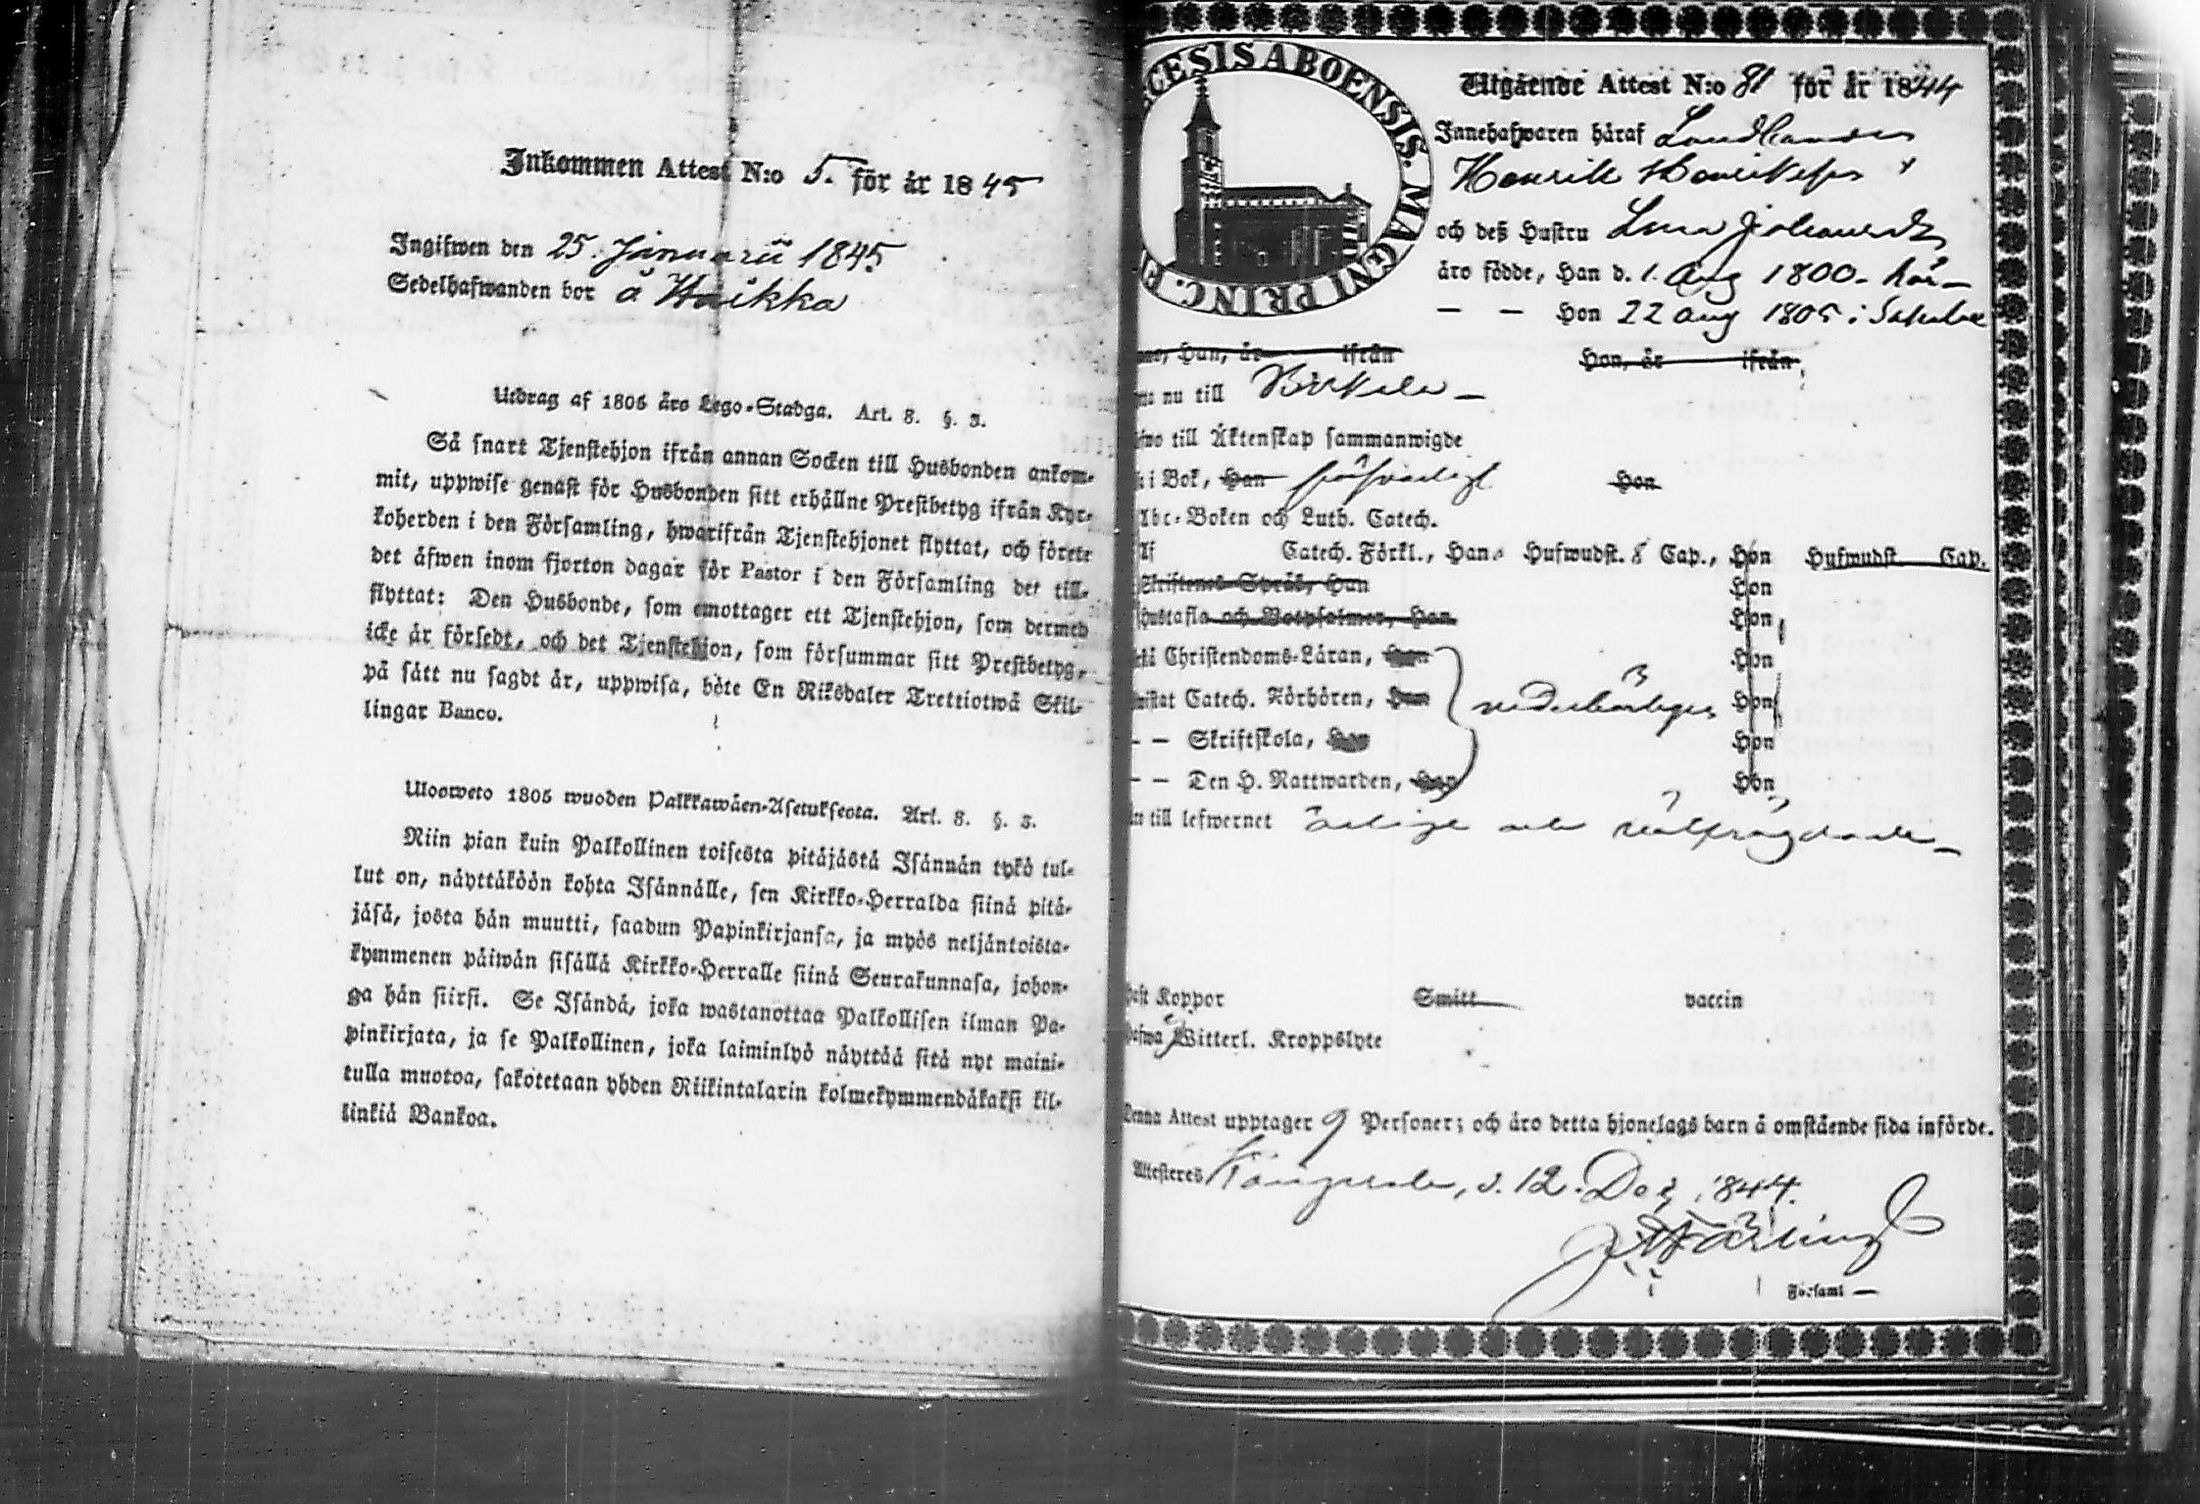 Inkommen Attest N:o 5. för år 1845
Ingifwen den 25. Januarii 1845
Sedelhafwanden bor å Haikka
Utdrag af 1805 års Lego-Stadga. Art. 8. §. 3.
Så snart Tjenstehjon ifrån annan Socken till Husbonden ankom-
mit, uppwise genast för Husbonden sitt erhållne Prestbetyg ifrån Kyr-
koherden i den Församling, hwarifrån Tjenstehjonet flyttat, och förete
det äfwen inom fjorton dagar för Pastor i den Församling det till-
flyttat: Den Husbonde, som emottager ett Tjenstehjon, som dermed
icke är försedt, och det Tjenstehjon, som försummar sitt Prestbetyg,
på sätt nu sagdt är, uppwisa, böte En Riksdaler Trettiotwå Skil-
lingar Banco.
Ulosweto 1805 wuoden Palkkawäen-Asetuksesta. Art. 8. §. 3.
Niin pian kuin Palkollinen toisesta pitäjästä Isännän tykö tul-
lut on, näyttäköön kohta Isännälle, sen Kirkko-Herralda siinä pitä-
jäsä, josta hän muutti, saadun Papinkirjansa, ja myös neljäntoista-
kymmenen päiwän sisällä Kirkko-Herralle siinä Seurakunnasa, johon-
ga hän siirsi. Se Isändä, joka wastanottaa Palkollisen ilman Pa-
pinkirjata, ja se Palkollinen, joka laiminlyö näyttää sitä nyt maini-
tulla muotoa, sakotetaan yhden Riikintalarin kolmekymmendäkaksi kil-
linkiä Bankoa.
CESIS ABOENSIS. MAGNI PRINC. F
Utgående Attest N:o 81 för år 1844
Innehafwaren häraf
Henrik Henriksson
och dess Hustru Lena Johansdr
äro födde, Han d. 1. Aug 1800. här
— — Hon 22 Aug 1805 i
Han, år ifrån Hon, år ifrån
nu till Birkala
till Äktenskap sammanwigde
i Bok, Han försvarligt Hon
Abc-Boken och Luth. Catech.
Catech. Förkl., Han Hufwudst. 8 Cap., Hon Hufwudst. Cap.
Skriftens Språk, Han Hon
Hustafla och Botpsalmer, Han Hon
Christendoms-Läran, Han Hon
Catech. Förhören, Han Hon
— — Skriftskola, Han Hon
— — Den H. Nattwarden, Han Hon
till lefwernet ärlige och välfrägdade
haft Koppor Smitt vaccin
Witterl. Kroppslyte
Denna Attest upptager 9 Personer; och äro detta hjonelags barn å omstående sida införde.
Attesteres Kangasala, d. 12. Dec 1844.
Församl —